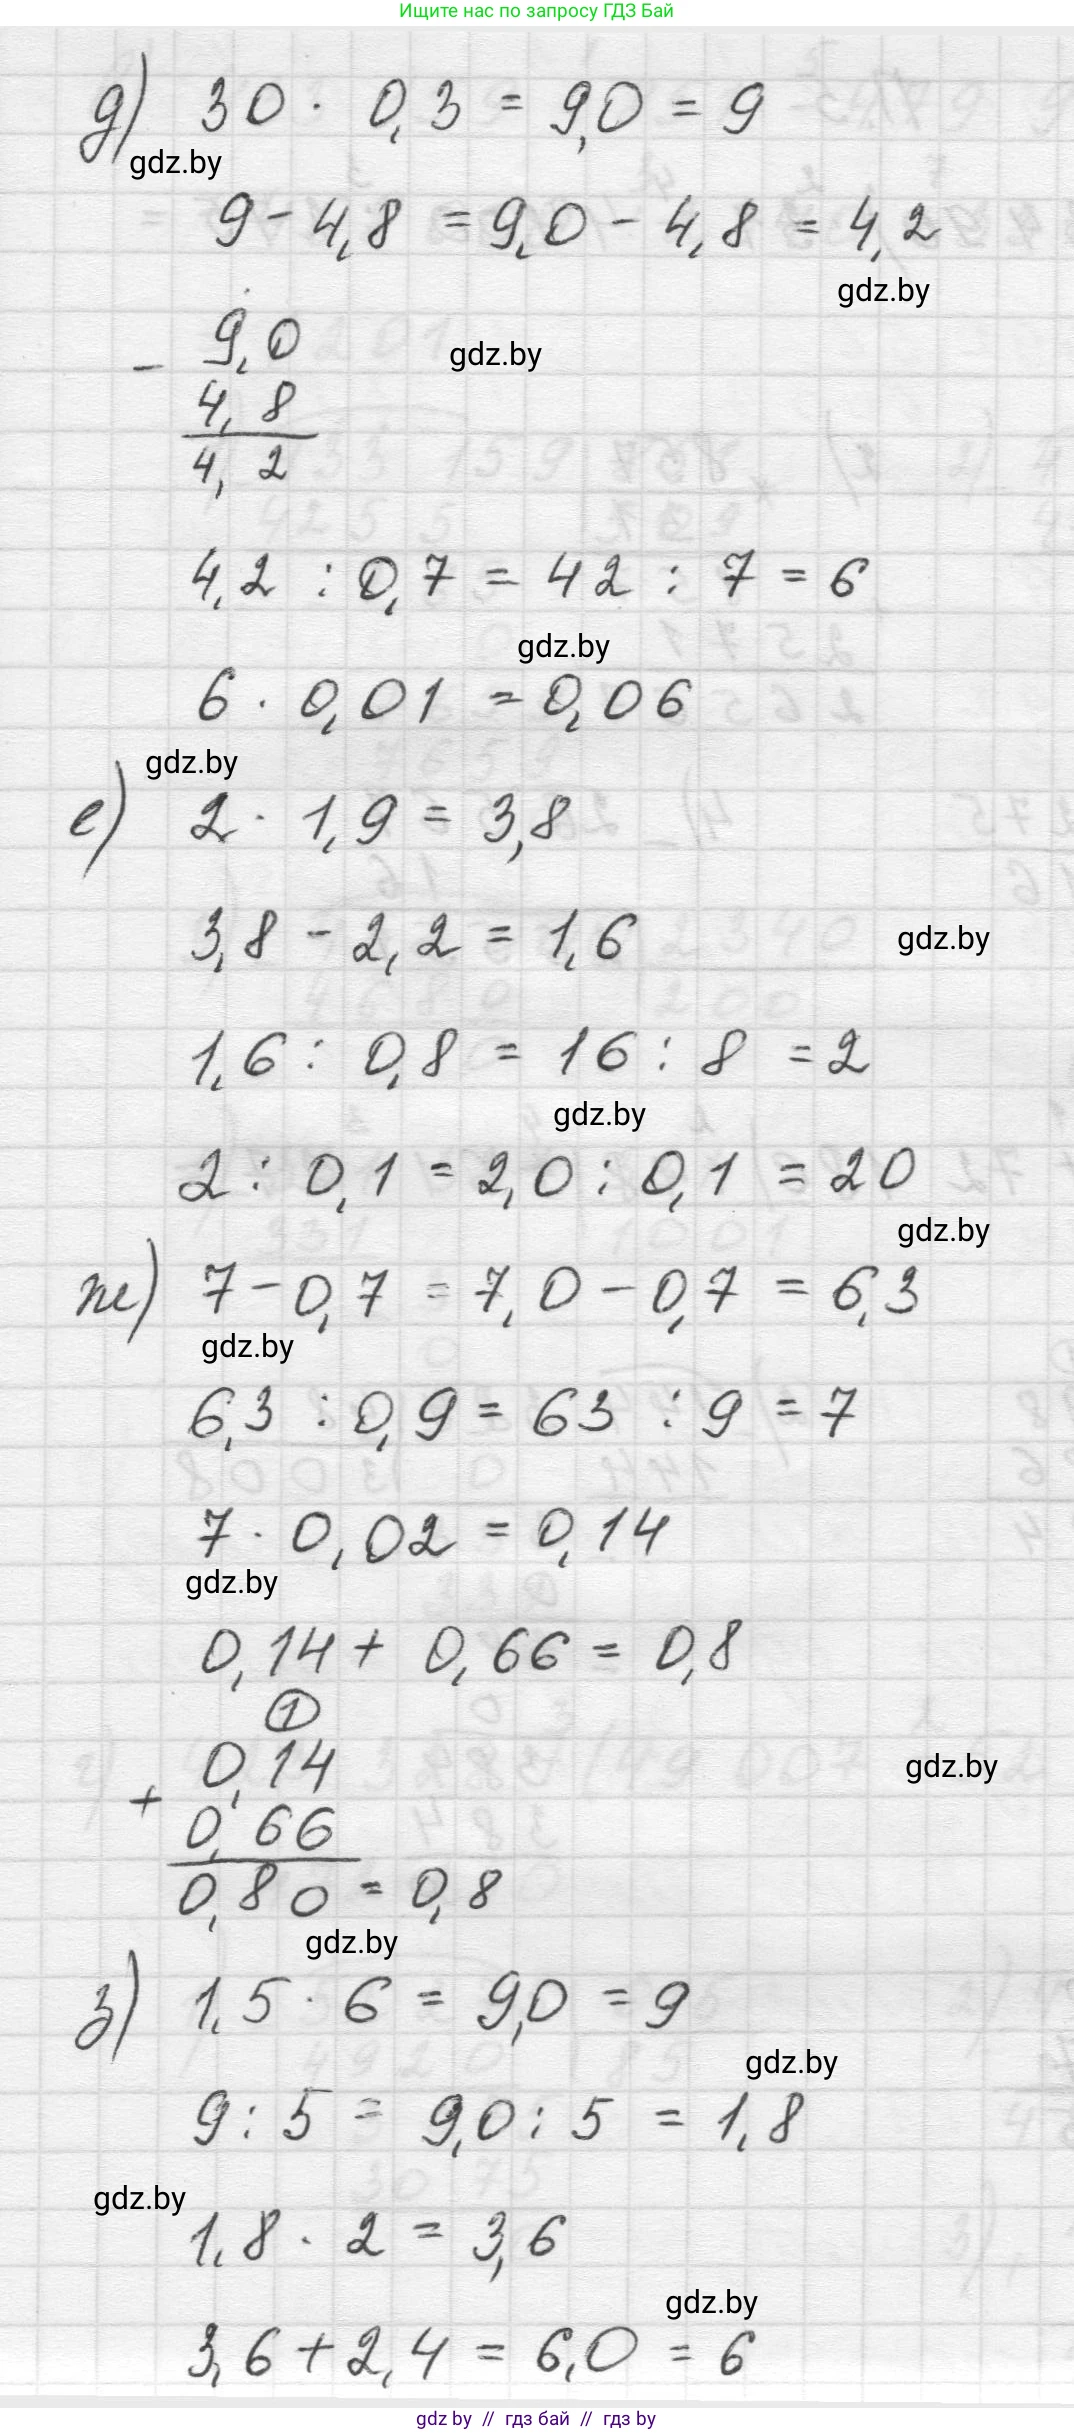 Ищите нас по запросу ГДЗ Бай
д) 30 · 0,3 = 9,0 = 9
gdz.by
9 - 4,8 = 9,0 - 4,8 = 4,2
gdz.by
9,0
gdz.by
-
4,8
4,2
4,2 : 0,7 = 42 : 7 = 6
gdz.by
6 · 0,01 = 0,06
gdz.by
е) 2 · 1,9 = 3,8
3,8 - 2,2 = 1,6
gdz.by
1,6 : 0,8 = 16 : 8 = 2
gdz.by
2 : 0,1 = 2,0 : 0,1 = 20
gdz.by
ж) 7 - 0,7 = 7,0 - 0,7 = 6,3
gdz.by
6,3 : 0,9 = 63 : 9 = 7
7 · 0,02 = 0,14
gdz.by
0,14 + 0,66 = 0,8
1
0,14
gdz.by
+
0,66
0,80 = 0,8
gdz.by
з) 1,5 · 6 = 9,0 = 9
gdz.by
9 : 5 = 9,0 : 5 = 1,8
gdz.by
1,8 · 2 = 3,6
gdz.by
3,6 + 2,4 = 6,0 = 6
gdz by // гдз бай // гдз by